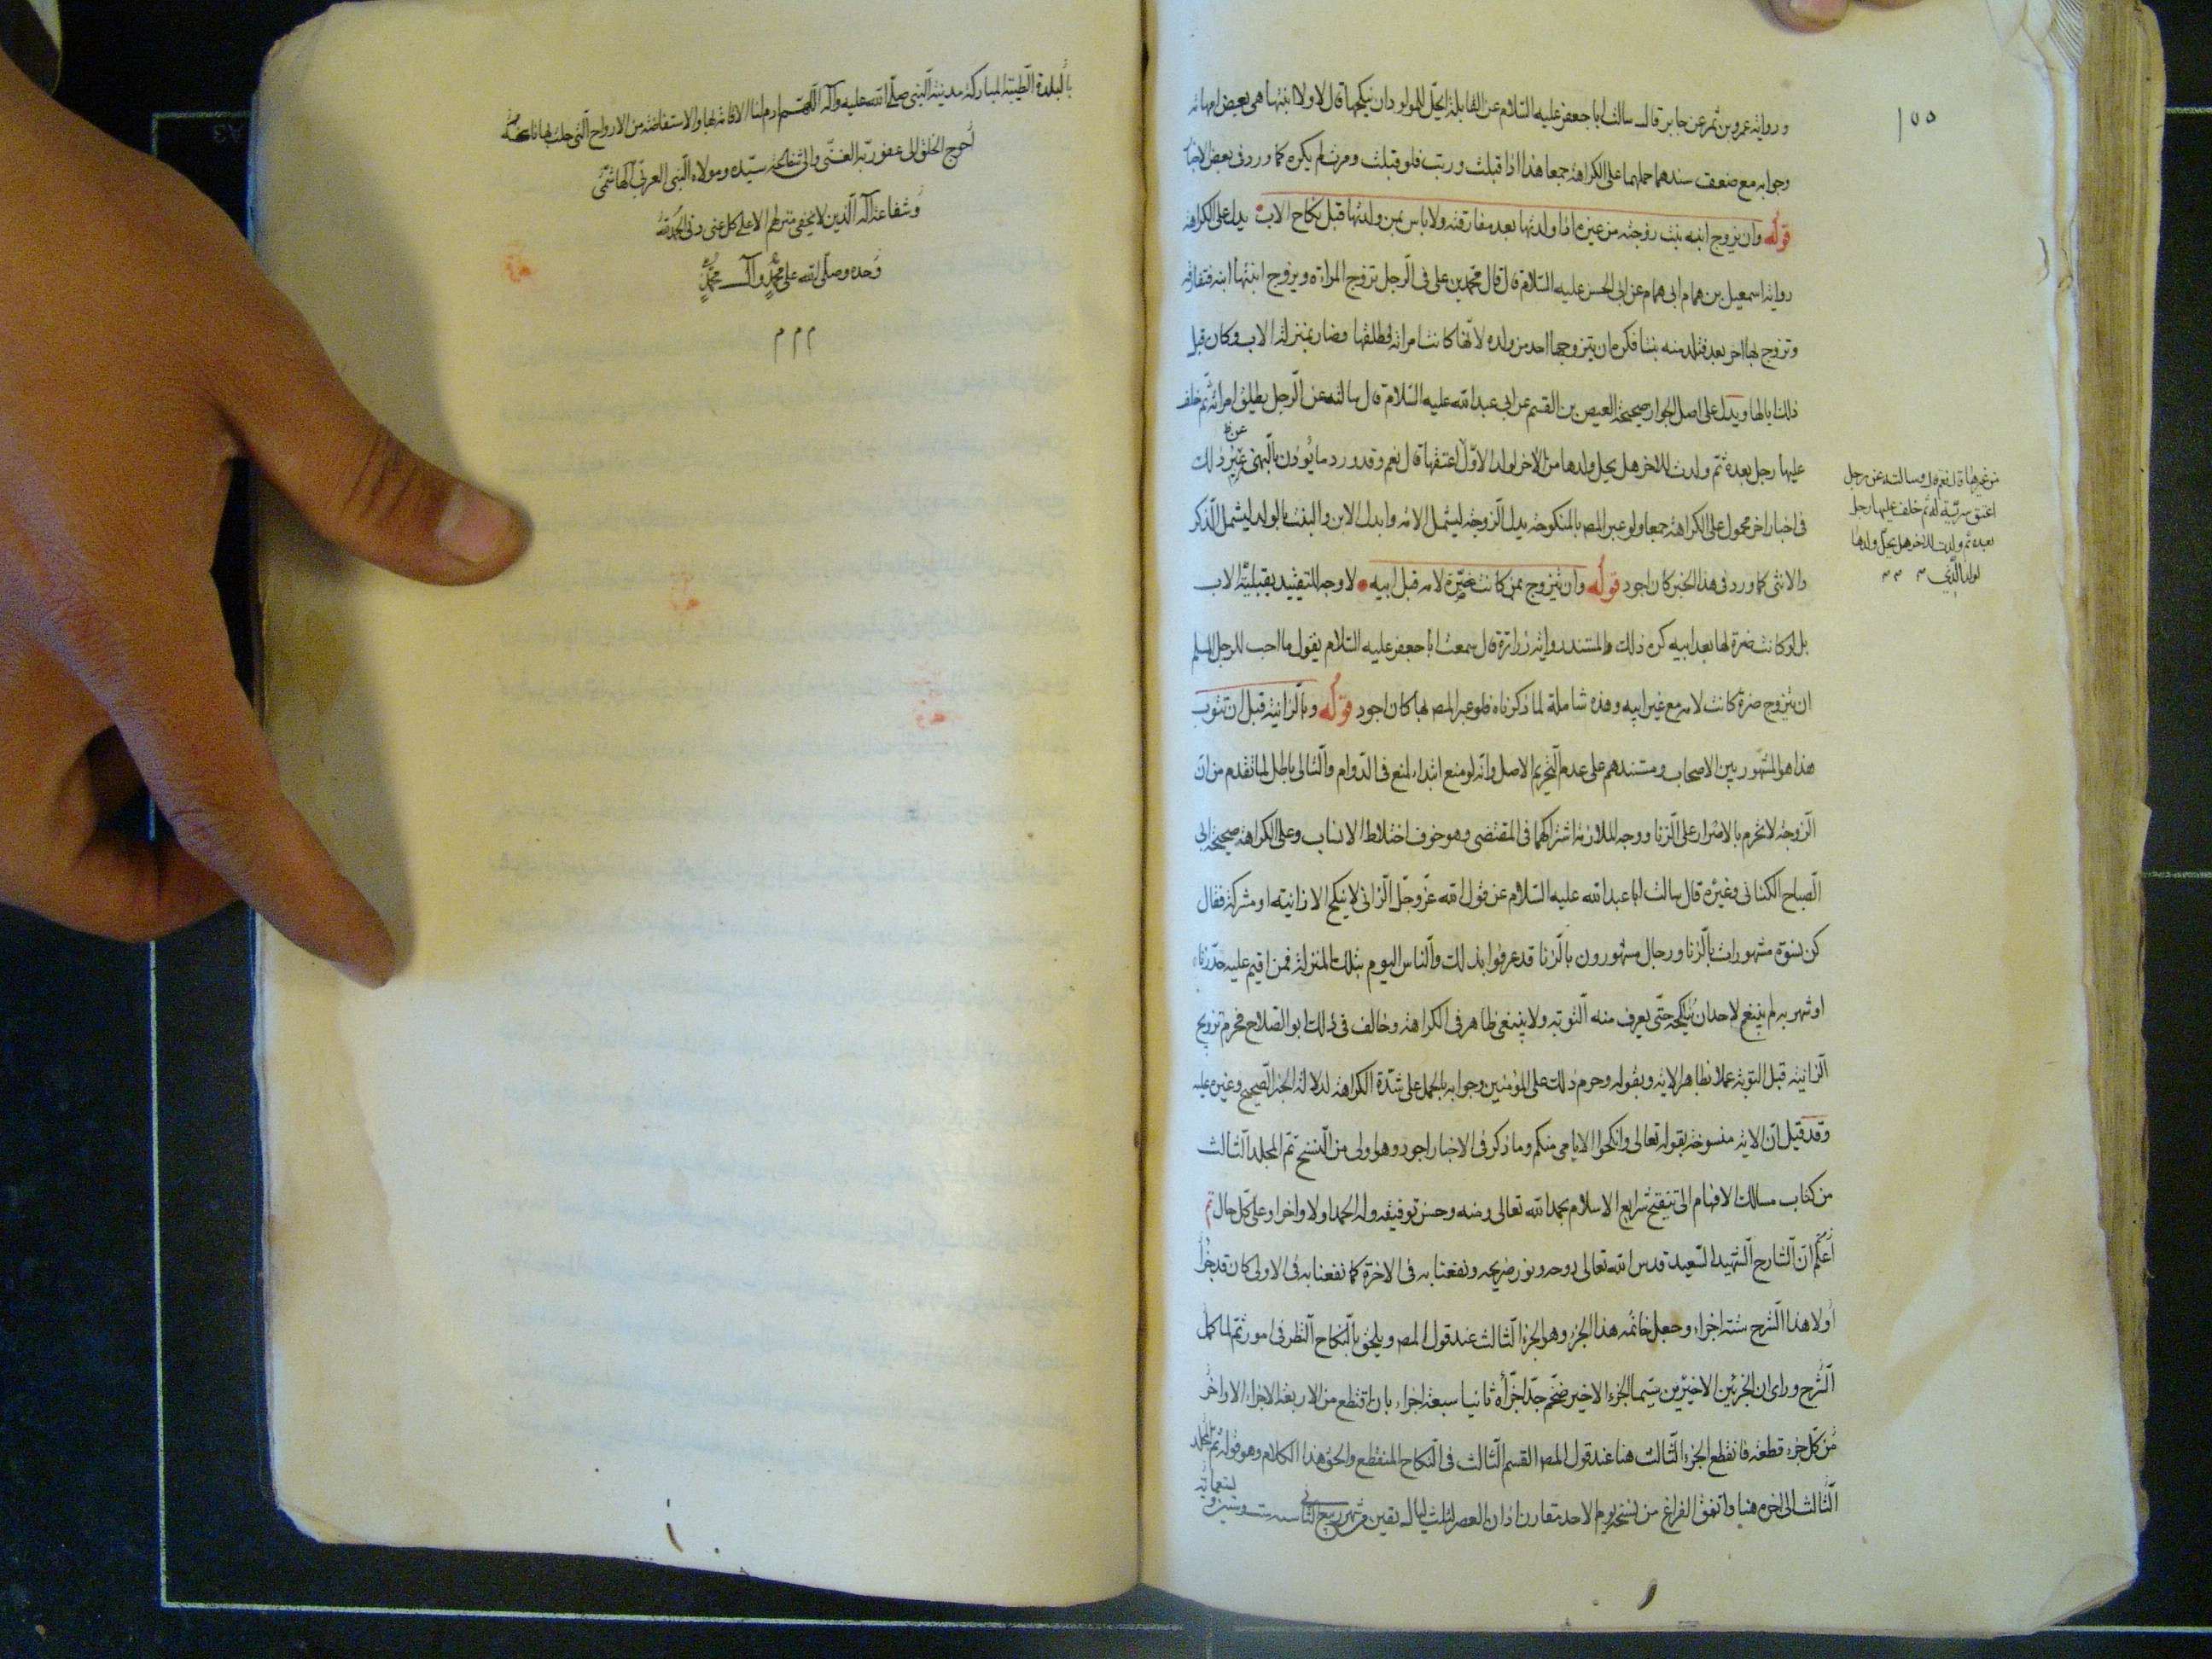 ١٥٥
ورواية عمرو بن شمر عن جابر قال سالت ابا جعفر عليه السلام عن القابلة ايحل للمولود ان ينكحها قال لا ولا ابنتها هي بعض امهاته
وجوابه مع ضعف سندهما حملهما على الكراهة جمعا هذا اذا قبلت وربت فلو قبلت ومرت لم يكره كما ورد في بعض الاخبار
قوله وان يزوج ابنه بنت زوجته من غيره اذا ولدتها بعد مفارقته ولا باس بمن ولدتها قبل نكاح الاب يدل على الكراهة
رواية اسمعيل بن همام ابي همام عن ابي الحسن عليه السلام قال قال محمد بن علي في الرجل تزوج المراة ويزوج ابنتها ابنه فتفارقه
وتزوج بها اخر بعد فتلد منه بنتا فكره ان يتزوجها احد من ولده لانها كانت امراته فطلقها فصار بمنزلة الاب وكان قبل
ذلك ابا لها ويدل على اصل الجواز صحيحة العيص بن القسم عن ابي عبد الله عليه السلام قال سالته عن الرجل يطلق امراته ثم خلف
عليها رجل بعده ثم ولدت للاخر هل يحل ولدها من الاخر لولد الاول اعتقها قال نعم وقد ورد ما يؤذن بالنهي عن غير ذلك
في اخبار اخر محمول على الكراهة جمعا ولو عبر المص بالمنكوحة بدل الزوجة ليشمل الامة وابدل الابن والبنت بالولد ليشمل الذكر
والانثى كما ورد في هذا الخبر كان اجود قوله وان يتزوج بمن كانت ضرة لامه قبل ابيه لا وجه للتقييد بقبلية الاب
بل لو كانت ضرة لها بعد ابيه كره ذلك والمستند رواية زرارة قال سمعت ابا جعفر عليه السلام يقول ما احب للرجل المسلم
ان يتزوج ضرة كانت لامه مع غير ابيه وهذه شاملة لما ذكرناه فلو عبر المص بها كان اجود قوله وبالزانية قبل ان تتوب
هذا هو المشهور بين الاصحاب ومستندهم على عدم التحريم الاصل وانه لو منع ابتداء لمنع في الدوام والتالي باطل لما تقدم من ان
الزوجة لا تحرم بالاصرار على الزنا ووجه الملازمة اشتراكهما في المقتضي وهو خوف اختلاط الانساب وعلى الكراهة صحيحة ابي
الصباح الكناني وغيره قال سالت ابا عبد الله عليه السلام عن قول الله عز وجل الزاني لا ينكح الا زانية او مشركة فقال
كن نسوة مشهورات بالزنا ورجال مشهورون بالزنا قد عرفوا بذلك والناس اليوم بتلك المنزلة فمن اقيم عليه حد زناء
او شهر به لم ينبغ لاحد ان يناكحه حتى يعرف منه التوبة ولا ينبغي ظاهر في الكراهة وخالف في ذلك ابو الصلاح فحرم تزويج
الزانية قبل التوبة عملا بظاهر الاية وبقوله وحرم ذلك على المؤمنين وجوابه بالحمل على شدة الكراهة لدلالة الخبر الصحيح وغيره عليه
وقد قيل ان الاية منسوخة بقوله تعالى وانكحوا الايامى منكم وما ذكر في الاخبار اجود وهو اولى من النسخ تم المجلد الثالث
من كتاب مسالك الافهام الى تنقيح شرايع الاسلام بحمد الله تعالى ومنه وحسن توفيقه وله الحمد اولا واخرا وعلى كل حال تم
اعلم ان الشارح الشهيد السعيد قدس الله تعالى روحه ونور ضريحه ونفعنا به في الاخرة كما نفعنا به في الاولى كان قد جزا
اولا هذا الشرح ستة اجزاء وجعل خاتمة هذا الجزء وهو الجزء الثالث عند قول المص ويلحق بالنكاح النظر في امور ثم لما كمل
الشرح وراى ان الجزئين الاخيرين سيما الجزء الاخير ضخم جدا جزأه ثانيا سبعة اجزاء بان اقتطع من الاربعة الاجزاء الاواخر
من كل جزء قطعة فانقطع الجزء الثالث هنا عند قول المص القسم الثالث في النكاح المنقطع والحق هذا الكلام وهو قوله تم المجلد
الثالث الى اخره هنا واتفق الفراغ من نسخه يوم الاحد مقارن اذان العصر لثلث ليال بقين من شهر ربيع الثاني سنه ست وستين وتسعمائه
من غيرها قال نعم قال وسالته عن رجل
اعتق سرية له ثم خلف عليها رجل
بعده ثم ولدت للاخر هل يحل ولدها
لولد الذي
بالبلدة الطيبة المباركة مدينة النبي صلى الله عليه وآله اللهم ارم لنا الاقامة بها والاستفاضة من الارواح التي حلت بها
احوج الخلق الى عفو ربه الغني والى شفاعة سيده ومولاه النبي العربي الهاشمي
وشفاعة آله الذين لا يخفى منزلهم الا على كل غبي ودني الحمد لله
وحده وصلى الله على محمد وآل محمد
م م م